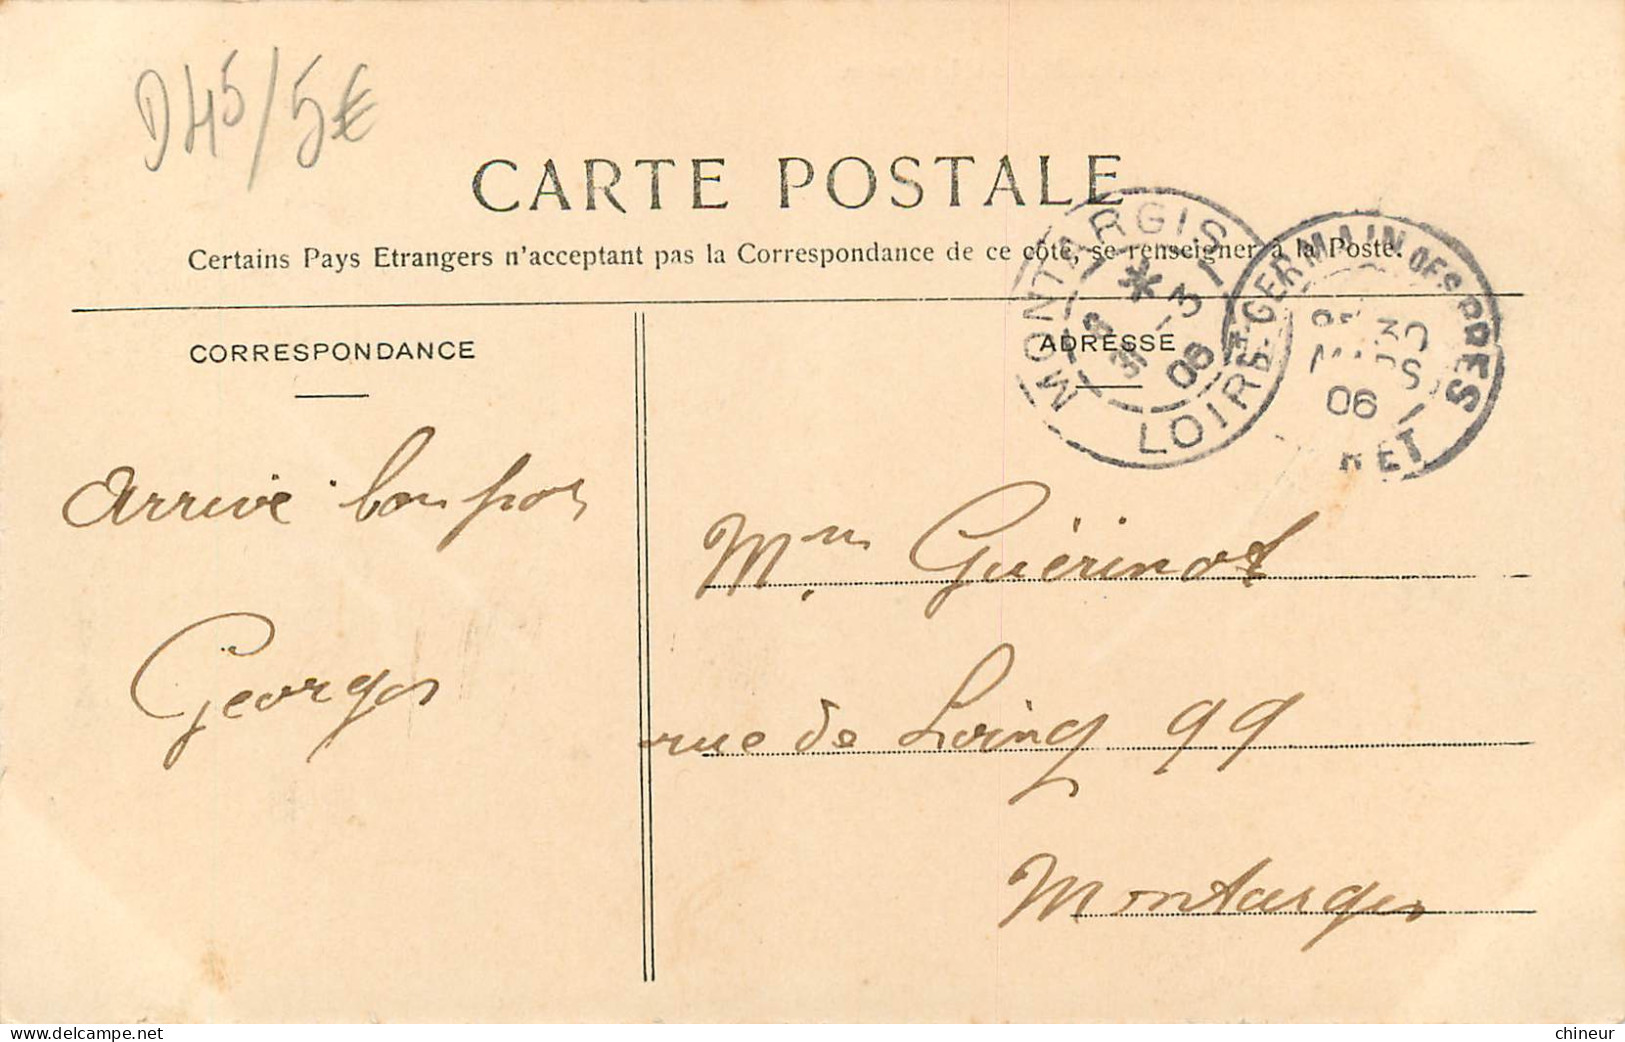 D45/5€
CARTE POSTALE
Certains Pays Etrangers n'acceptant pas la Correspondance de ce côté, se renseigner à la Poste.
CORRESPONDANCE
ADRESSE
MONTARGIS
LOIRET
3
31
06
ST-GERMAIN DES PRES
30
MARS
06
RET
Arrivé bon port
Georges
Mme Guérinot
rue de Loing 99
Montargis
delcampe.net
chineur